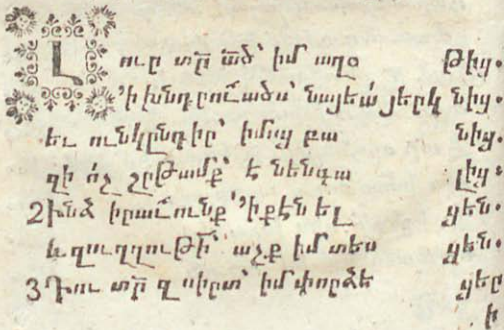 Լուր տր̃ ած̃՝ իմ աղօ թից.
՚ի խնդրուածս՝ նայեա՛ յերկ նից.
եւ ունկընդիր՝ իմոց բա նից.
զի ո՛չ շըթամք՝ է նենգա լից։
2 Ինձ իրաւունք՝ ՚իքէն ել ցեն.
և զուղղութի՝ աչք իմ տես ցեն.
3 Դու տր̃ զսիրտ՝ իմ փորձե ցեր
ի